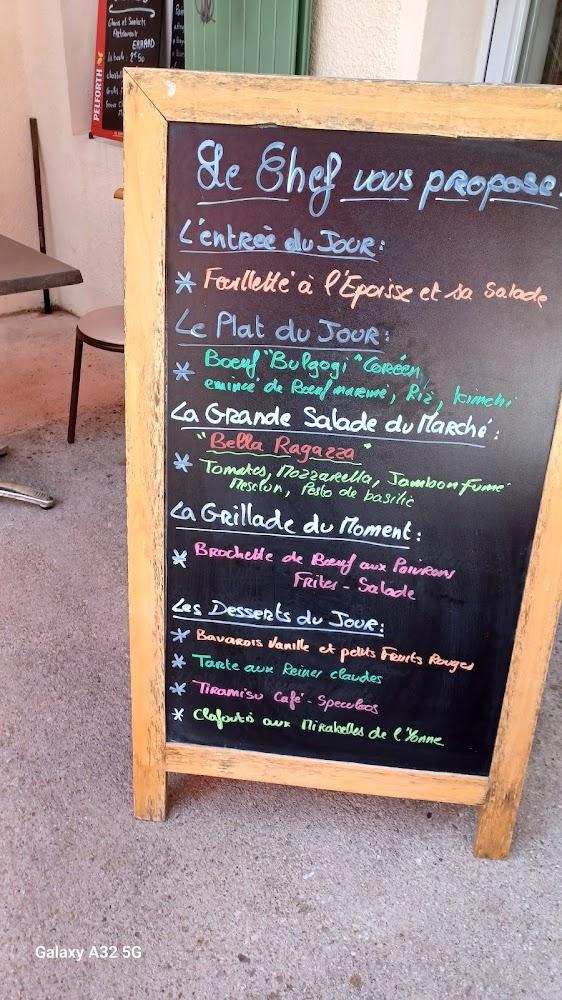 Glaces et Sorbets
Artisanaux
ERHARD
La boule: 2€50
PELFORTH
Le Chef vous propose.
L'entrée du Jour:
* Feuilleté à l'Epoisse et sa Salade
Le Plat du Jour:
* Boeuf "Bulgogi" Coréen,
emincé de Boeuf mariné, Riz, kimchi
La Grande Salade du Marché:
"Bella Ragazza"
* Tomates, Mozzarella, Jambon fumé
Mesclun, Pesto de basilic
La Grillade du Moment:
* Brochette de Boeuf aux Poivrons
Frites - Salade
Les Desserts du Jour:
* Bavarois Vanille et petits Fruits Rouges
* Tarte aux Reines claudes
* Tiramisu Café - Speculoos
* Clafoutis aux Mirabelles de l'Yonne
Galaxy A32 5G